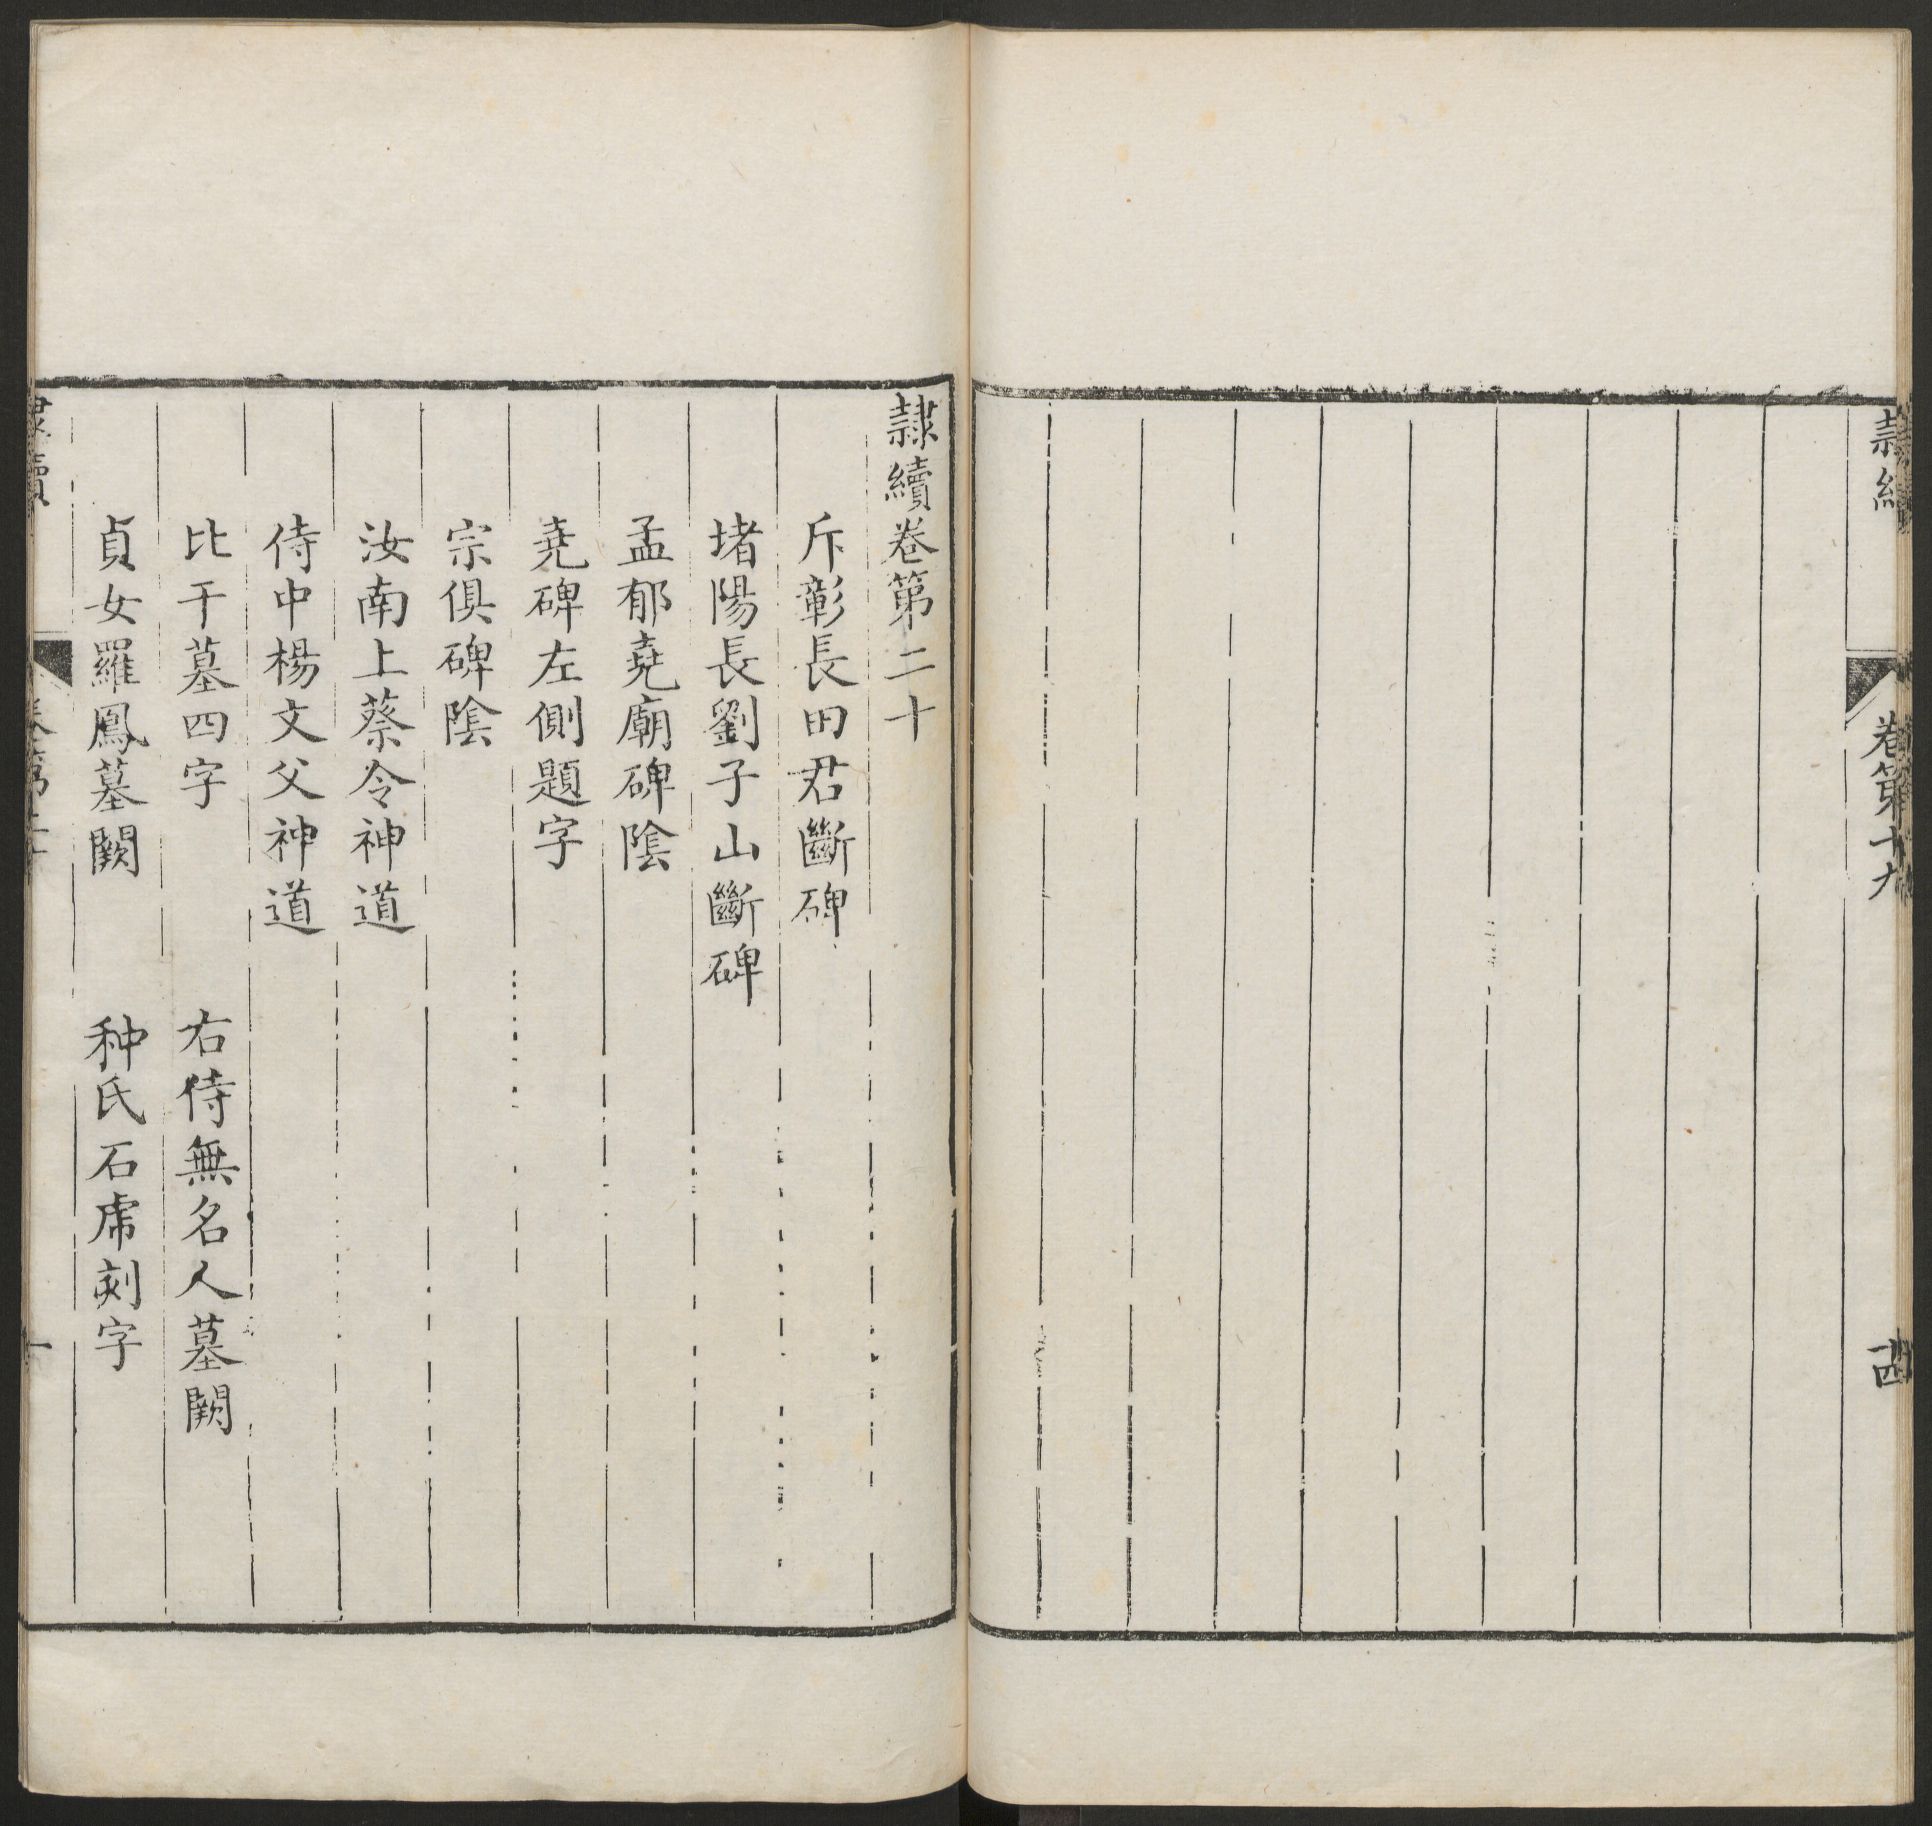 隸續
卷第十九
十四
隸續卷第二十
斥彰長田君斷碑
堵陽長劉子山斷碑
孟郁堯廟碑陰
堯碑左側題字
宗俱碑陰
汝南上蔡令神道
侍中楊文父神道
比干墓四字　右侍無名人墓闕
貞女羅鳳墓闕　种氏石虎刻字
隸續
卷第二十
一